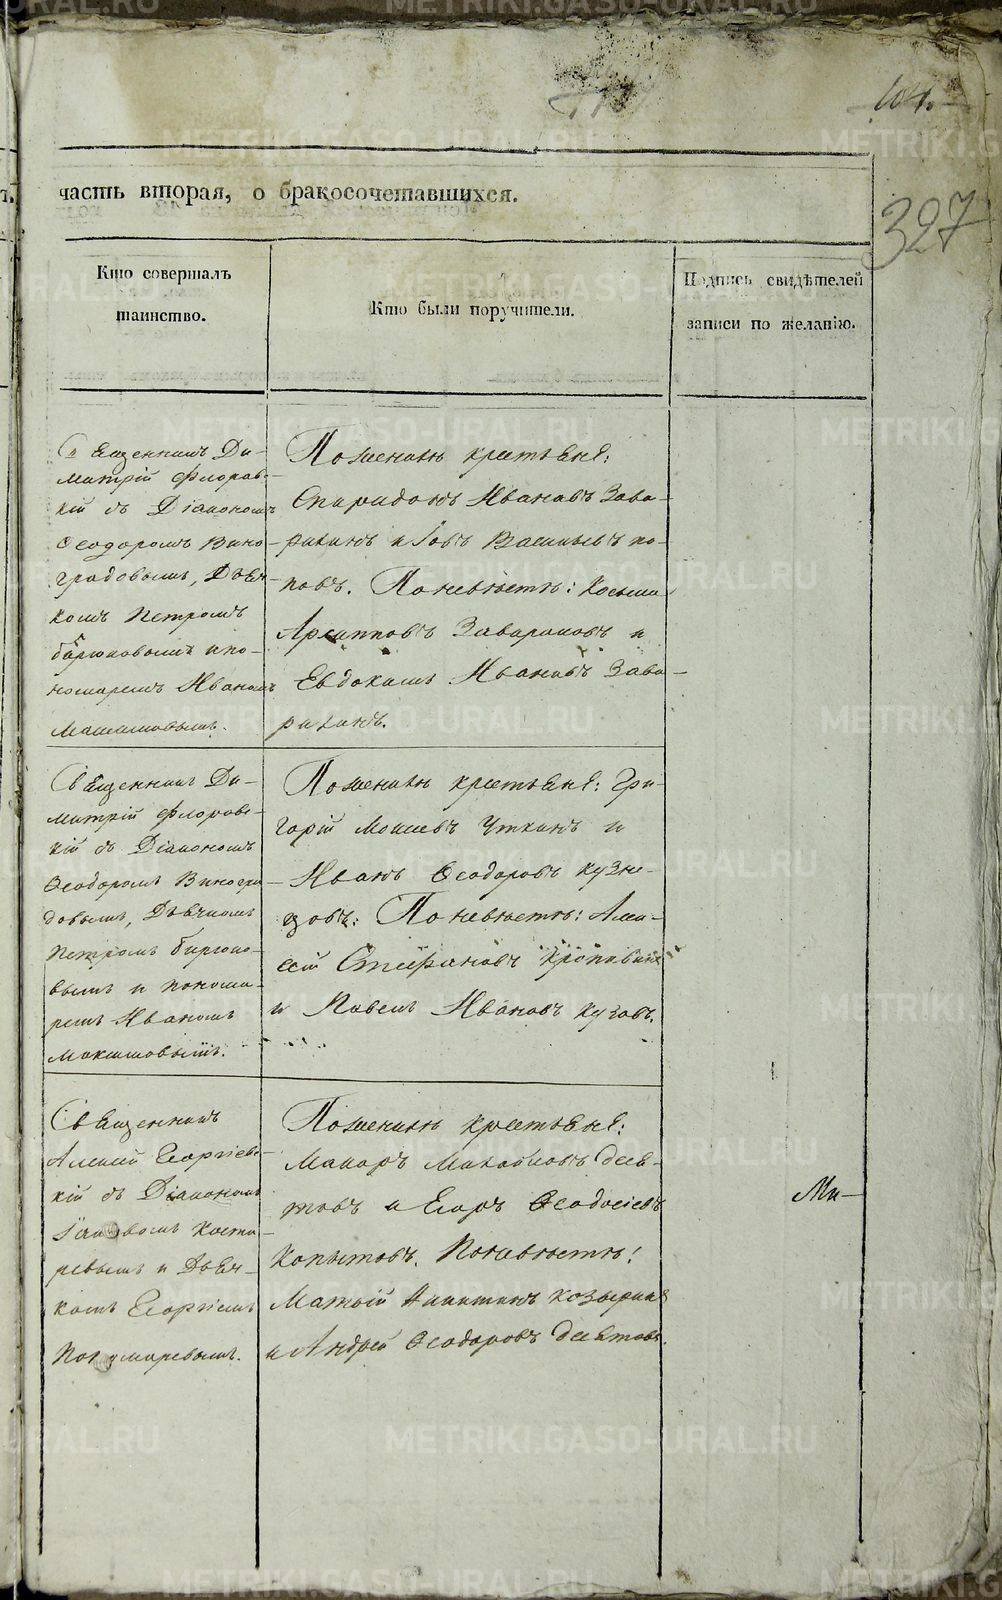 104.
327
часть вторая, о бракосочетавшихся.
Кто совершалъ
таинство.
Кто были поручители.
Подпись свидѣтелей
записи по желанію.
Священникъ Ди-
митрій Флоров-
кій съ Діакономъ
Ѳеодоромъ Вино-
градовымъ, Дьяч-
комъ Петромъ
Бирюковымъ и по-
номаремъ Иваномъ
Максимовымъ.
По женихѣ крестьяне:
Спиридонъ Ивановъ Зава-
рихинъ и Іовъ Васильевъ по-
повъ. По невѣстѣ: Косьма
Архипповъ Заварихинъ и
Евдокимъ Ивановъ Зава-
рихинъ.
Священникъ Ди-
митрій Флоровс-
кій съ Діакономъ
Ѳеодоромъ Виногра-
довымъ, Дьячкомъ
Петромъ Бирюко-
вымъ и понома-
ремъ Иваномъ
Максимовымъ.
По женихѣ крестьяне: Гри-
горій Моисеевъ Уткинъ и
Иванъ Ѳеодоровъ кузне-
цовъ: По невѣстѣ: Алек-
сѣй Стефановъ
и Павелъ Ивановъ
Священникъ
Алексій Георгіевс-
кій съ Діакономъ
Іаковомъ Косты-
ревымъ и Дьяч-
комъ Георгіемъ
По женихѣ крестьяне:
Макаръ Михайловъ Девя-
товъ и Егоръ Ѳеодосіевъ
Копытовъ. По невѣстѣ:
Матѳій Никитинъ
и Андрей Ѳеодоровъ Девятовъ.
Ми-
METRIKI.GASO-URAL.RU